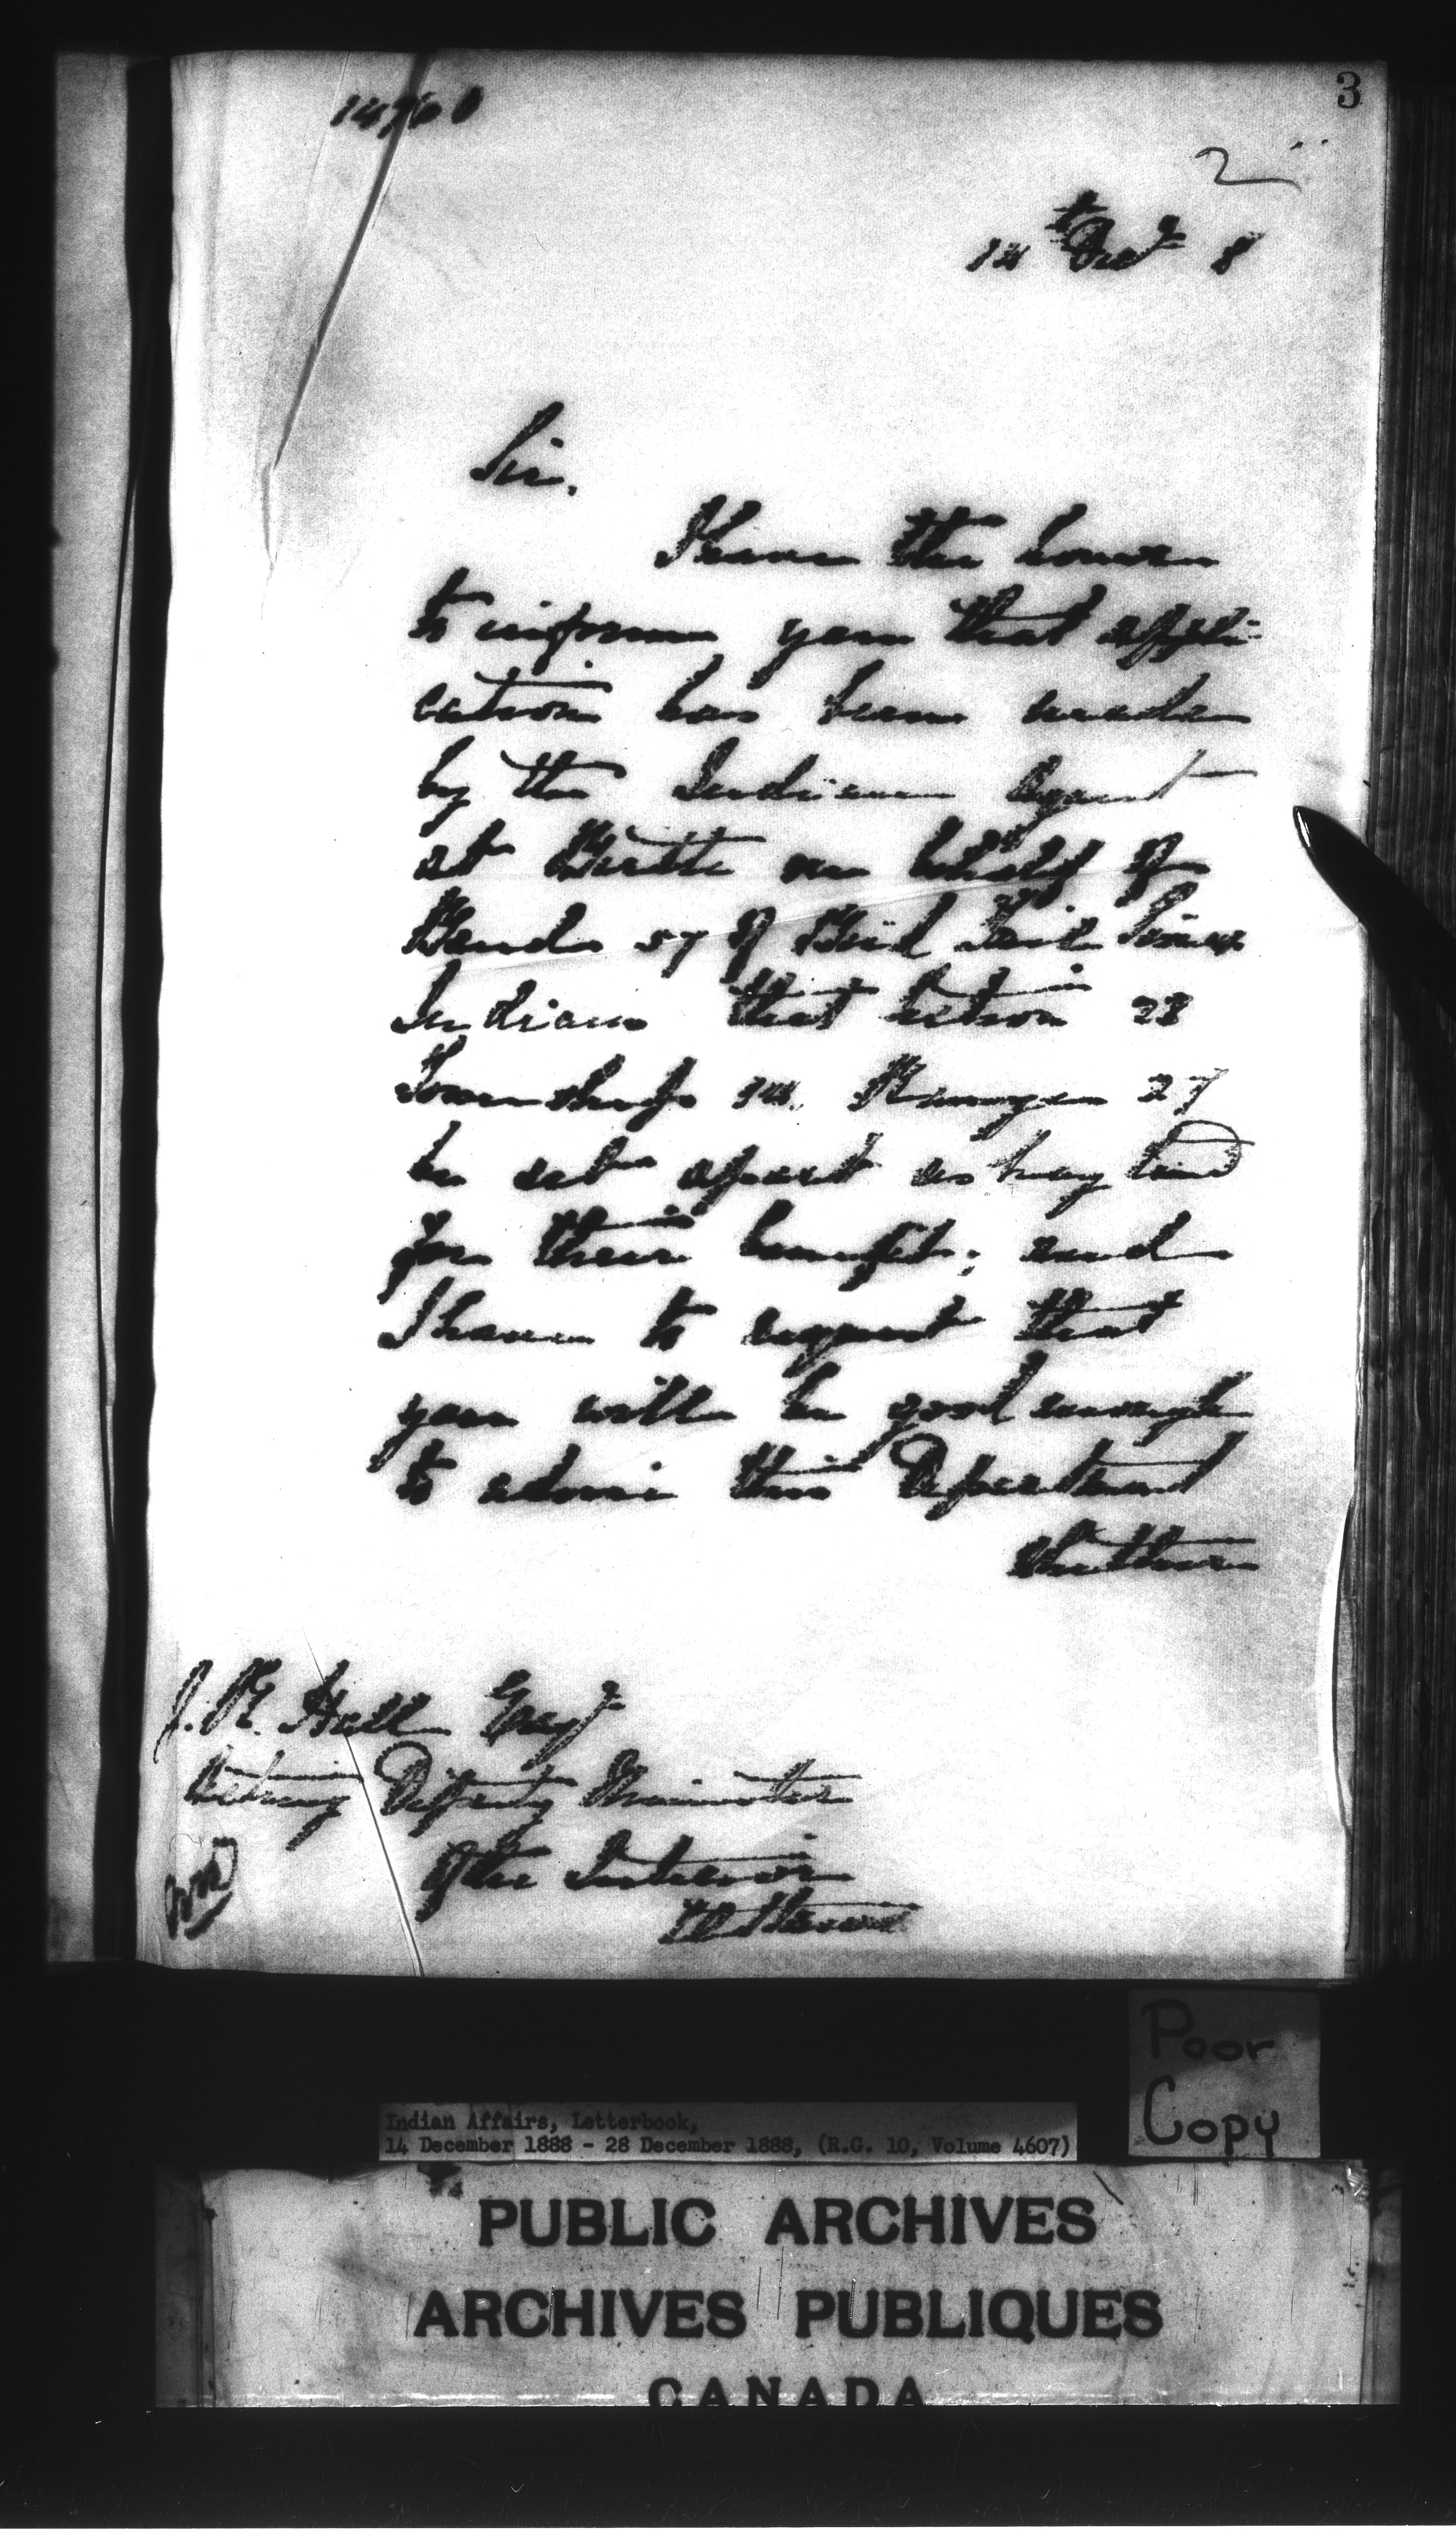 3
2
14th Decr 8
Sir,
I have the honor
to inform you that appli-
cation has been made
by the Indian Agent
at Birtle on behalf of
Band 57 of Bird Tail Sioux
Indians that Section 23
Township 14. Range 27
be set apart as hay land
for their benefit; and
I have to request that
you will be good enough
to advise this Department
whether
J. R. Hall Esqr
Acting Deputy Minister
of the Interior
Ottawa
Poor
Copy
Indian Affairs, Letterbook,
14 December 1888 - 28 December 1888, (R.G. 10, Volume 4607)
PUBLIC ARCHIVES
ARCHIVES PUBLIQUES
CANADA